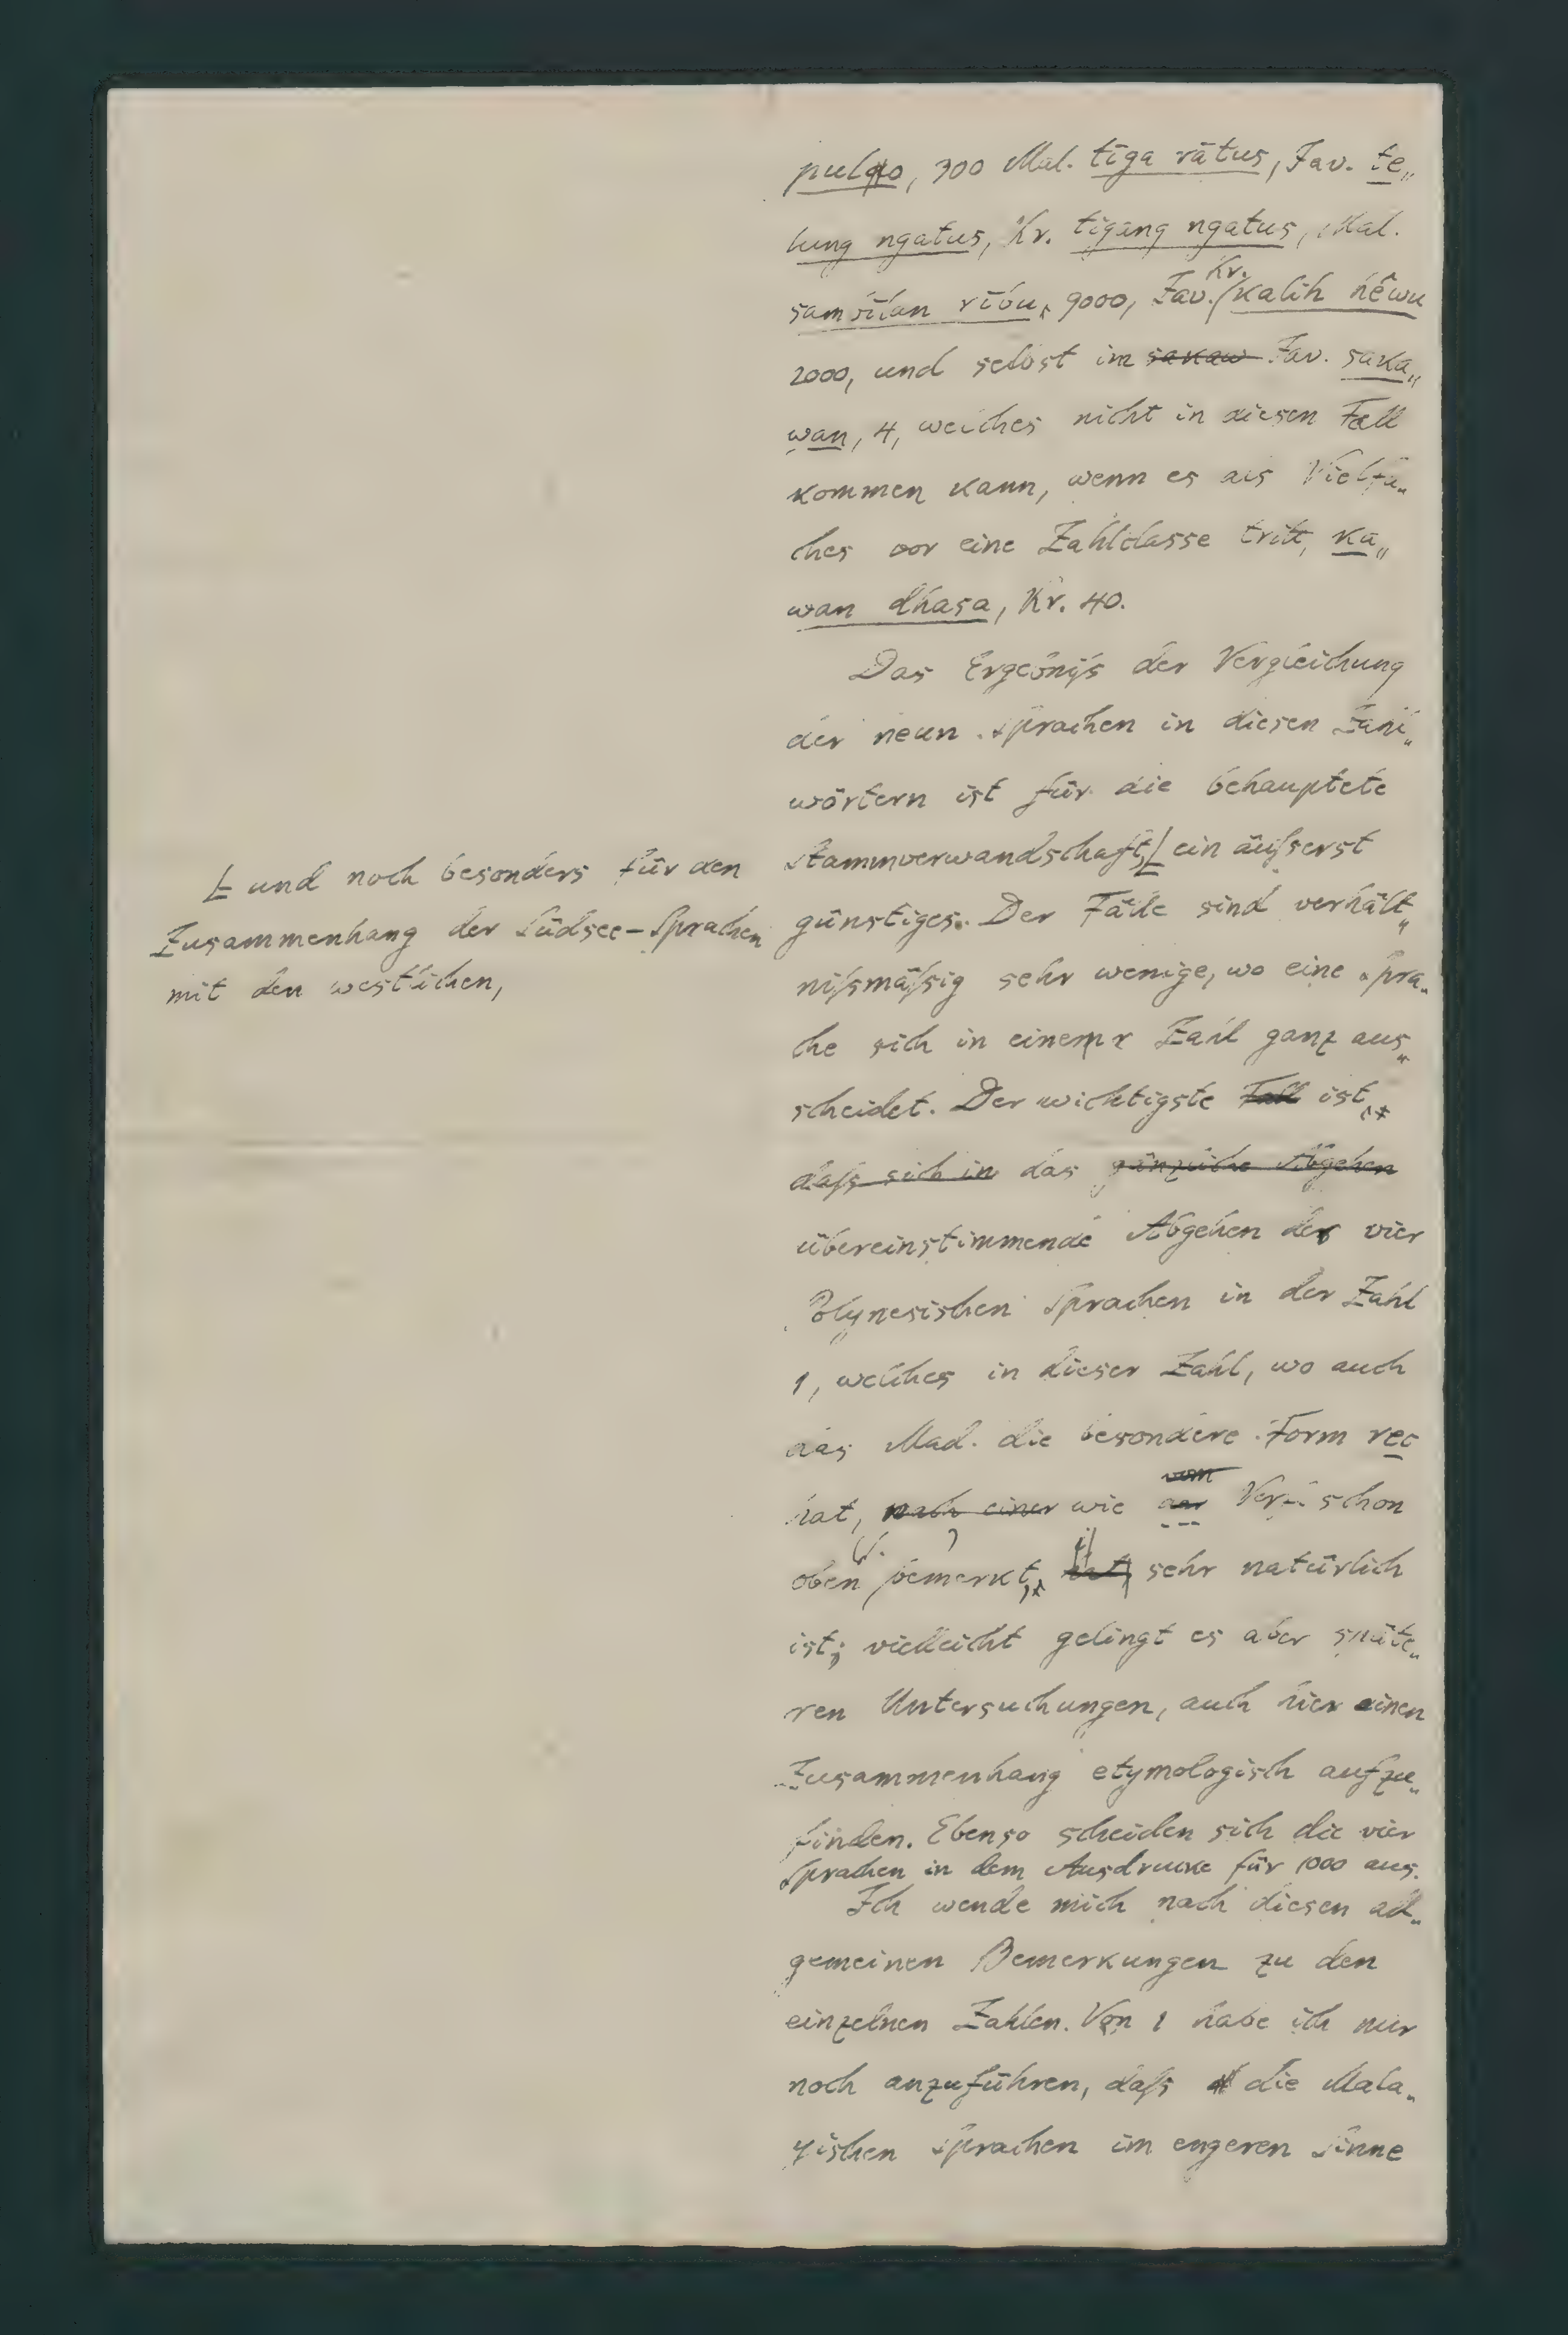 pulo, 300 Mal. tīga rātus, Jav. te„
lung ngatus, Kr. tigang ngatus, Mal.
sambīlan rību, 9000, Jav. Kr. kalih hêwu
2000, und selbst im sakaw Jav. saka„
wan, 4, welches nicht in diesen Fall
kommen kann, wenn es als Vielfa„
ches vor eine Zahlclasse tritt, ka„
wan dhasa, Kr. 40.
Das Ergebniſs der Vergleichung
der neun Sprachen in diesen Zahl„
wörtern ist für die behauptete
Stammverwandschaft, ein äuſserst
günstiges. Der Fälle sind verhält„
niſsmäſsig sehr wenige, wo eine Spra„
che sich in einer Zahl ganz aus„
scheidet. Der wichtigste Fall ist
daſs sich in das gänzliche Abgehen
übereinstimmende Abgehen der vier
Polynesischen Sprachen in der Zahl
1, welches in dieser Zahl, wo auch
das Mad. die besondere Form rec
hat, nach einer wie vom der Verf. schon
oben bemerkt, hat, sehr natürlich
ist; vielleicht gelingt es aber späte„
ren Untersuchungen, auch hier einen
Zusammenhang etymologisch aufzu„
finden. Ebenso scheiden sich die vier
Sprachen in dem Ausdrucke für 1000 aus.
Ich wende mich nach diesen all„
gemeinen Bemerkungen zu den
einzelnen Zahlen. Von 1 habe ich nur
noch anzuführen, daſs die Mala„
yischen Sprachen im engeren Sinne
und noch besonders für den
Zusammenhang der Südsee-Sprachen
mit den westlichen,